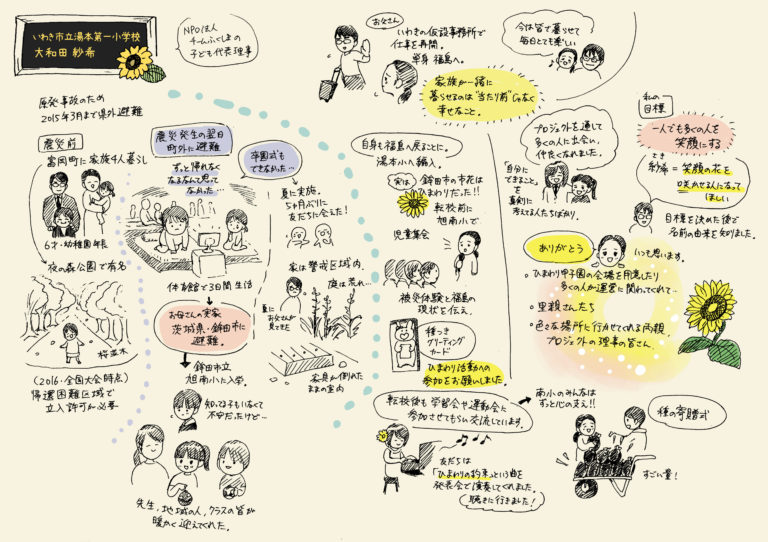 いわき市立湯本第一小学校
大和田 紗希
NPO法人
チームふくしまの
子ども代表理事
原発事故のため
2015年3月まで県外避難
震災前
富岡町に家族4人暮らし
6才・幼稚園年長
夜の森公園で有名
桜並木
(2016・全国大会時点)
帰還困難区域で
立入許可が必要
震災発生の翌日
町外に避難
ずっと帰れなく
なるなんて思って
なかった…
体育館で3日間生活
お母さんの実家
茨城県・鉾田市に
避難。
鉾田市立
旭南小に入学。
知ってる子もいなくて
不安だったけど…
先生、地域の人、クラスの皆が
暖かく迎えてくれた。
卒園式も
できなかった…
夏に実施。
5ヶ月ぶりに
友だちに会えた!
家は警戒区域内。
庭は荒れ…
夏に
お父さんが
見てきた
家具が倒れた
ままの室内
お父さん
いわきの仮設事務所で
仕事を再開。
単身 福島へ。
家族が一緒に
暮らせるのは“当たり前”じゃなく
幸せなこと。
今は皆で暮らせて
毎日とても楽しい
自身も福島へ戻ることに。
湯本小へ編入。
実は
鉾田市の市花は
ひまわりだった!!
転校前に
旭南小で
児童集会
被災体験と福島の
現状を伝え、
種つき
グリーティング
カード
ひまわり活動への
参加をお願いしました。
転校後も学習会や運動会に
参加させてもらい交流しています。
友だちは
「ひまわりの約束」という曲を
発表会で演奏してくれました。
聴きに行きました!
南小のみんなは
ずっと心の支え!!
プロジェクトを通して
多くの人に出会い、
仲良くなれました。
「自分に
できること」
を
真剣に
考えてる人たちばかり。
私の
目標
一人でも多くの人を
笑顔にする
さき
紗希=笑顔の花を
咲かせる人になって
ほしい
目標を決めた後で
名前の由来を知りました。
ありがとう
いつも思います。
・ひまわり甲子園の会場を用意したり
多くの人が運営に関わってくれて…
・里親さんたち
・色々な場所に行かせてくれる両親
プロジェクトの理事の皆さん。
種の寄贈式
すごい量!